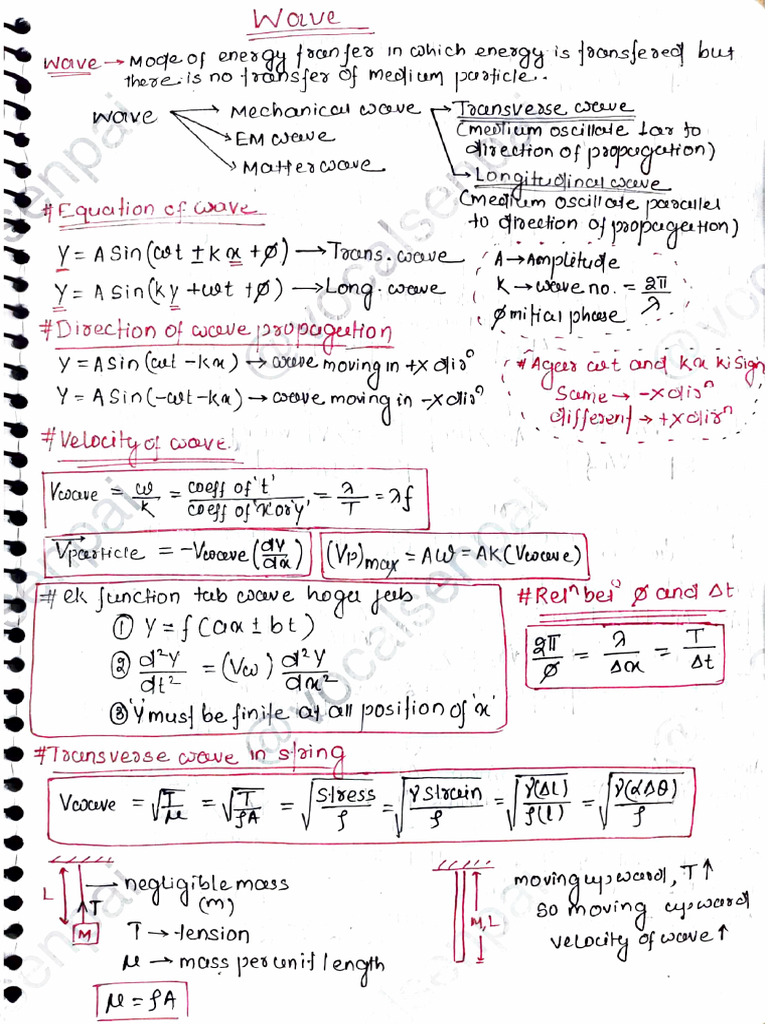 Wave
Wave → Mode of energy tranfer in which energy is transfered but
there is no transfer of medium particle.
Wave → Mechanical wave → Transverse wave
(medium oscillate ⊥ar to
→ EM wave
direction of propagation)
→ Matter wave
→ Longitudinal wave
(Medium oscillate parallel
to direction of propagation)
# Equation of wave
Y = A Sin(ωt ± kx + ϕ) → Trans. wave
Y = A Sin(ky + ωt + ϕ) → Long. wave
A → Amplitude
K → wave no. = 2π/λ
ϕ initial phase
# Direction of wave propagation
Y = A Sin(ωt - kx) → wave moving in +X dirⁿ
Y = A Sin(-ωt - kx) → wave moving in -X dirⁿ
# Agar ωt and kx ki Sign
Same → -X dirⁿ
different → +X dirⁿ
# Velocity of wave.
Vwave = ω/K = coeff of 't' / coeff of 'x' or 'y' = λ/T = λf
Vparticle = -Vwave (dy/dx)
(Vp)max = Aω = AK (Vwave)
# ek function tab wave hoga jab
① Y = f(ax ± bt)
② d²Y/dt² = (Vω) d²Y/dx²
③ 'Y' must be finite at all position of 'x'
# Relⁿ betⁿ ϕ and Δt
2π/ϕ = λ/Δx = T/Δt
# Transverse wave in string
Vwave = √(T/μ) = √(T/ρA) = √(Stress/ρ) = √(Y Strain/ρ) = √(Y(ΔL)/ρ(l)) = √(Y(αΔθ)/ρ)
L
T
M
→ negligible mass
(m)
T → tension
μ → mass per unit length
μ = ρA
M, L
moving upward, T↑
so moving upward
velocity of wave ↑
@vocalsenpai